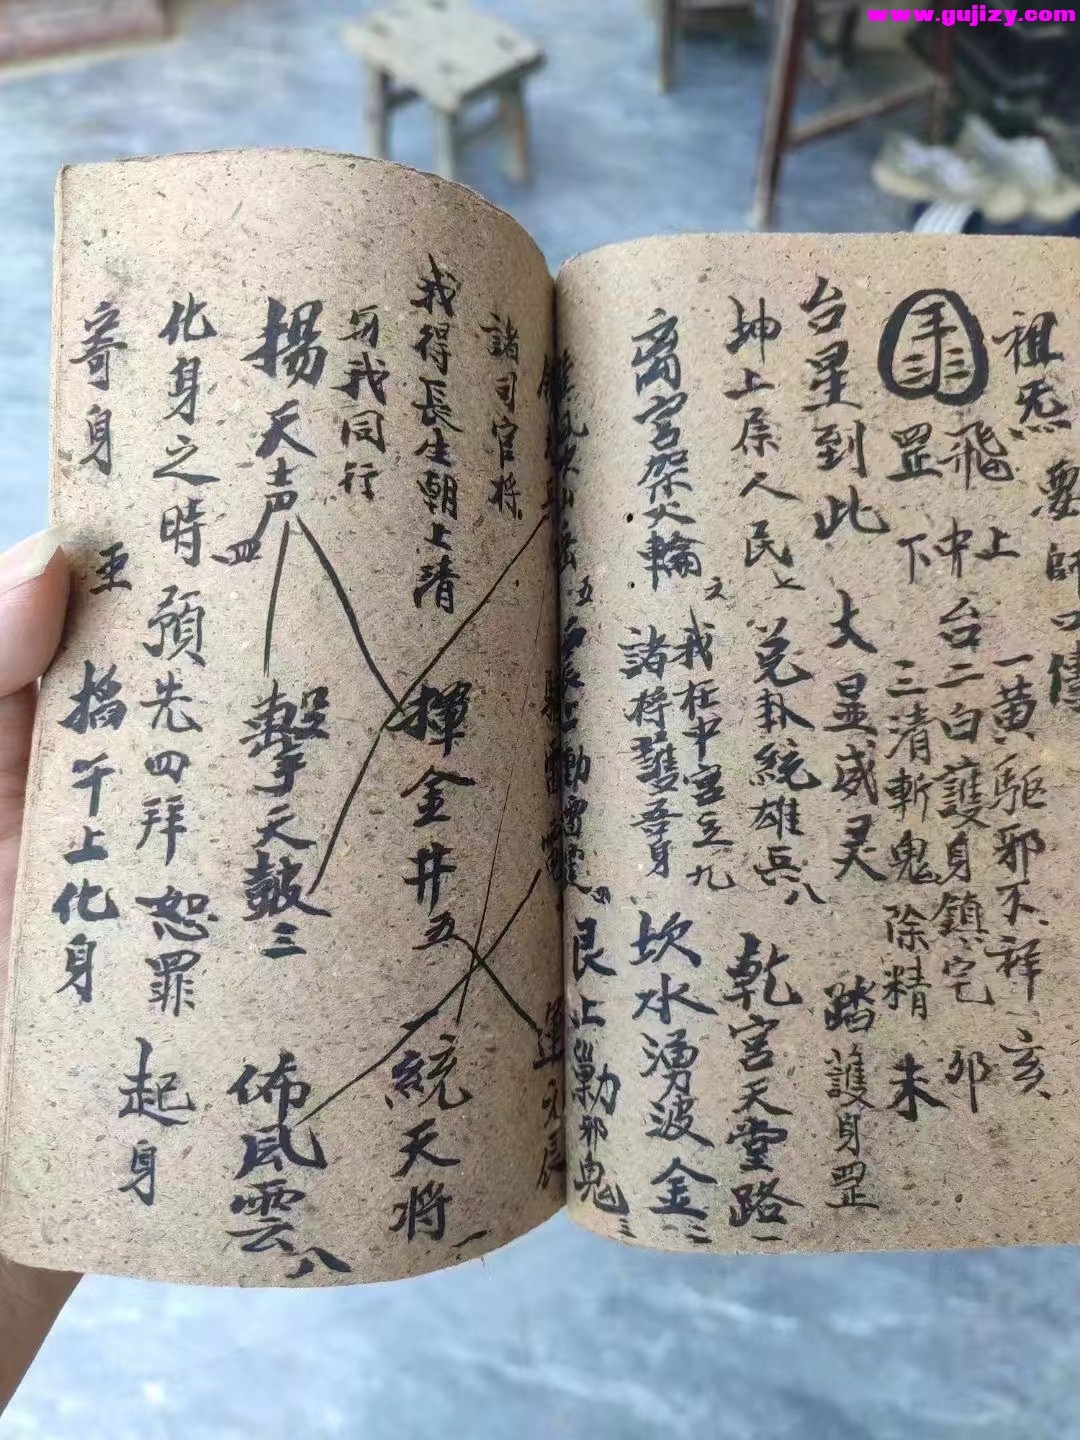 www.gujizy.com
祖炁
師口傳
手三三
飛 上 一黃驅邪不祥 亥
中台二白護身鎮宅 卯
罡 下 三清斬鬼除精 未
台星到此 大显威灵 踏護身罡
坤上庶人民七 兑卦統雄兵八 乾宮天堂路一
离宮架火輪 我在中宮立九
諸将護吾身 坎水湧波金二
艮上勦邪鬼三
諸司官将
我得長生朝上清 揮金井五 統天将一
与我同行
揚天声四 擊天鼓三 佈風雲八
化身之時 預先四拜恕罪 起身
寄身 玉 搯午上化身